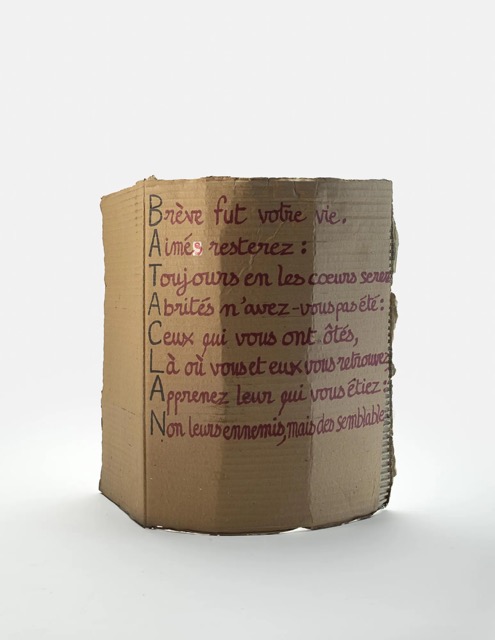 Brève fut votre vie.
Aimés resterez :
Toujours en les cœurs
Abrités n'avez-vous pas été :
Ceux qui vous ont ôtés,
Là où vous et eux vous retrouvez
Apprenez leur qui vous étiez :
Non leurs ennemis, mais des semblable